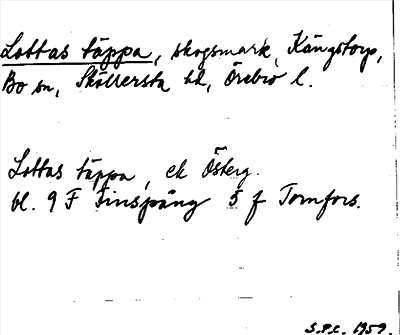 Lottas täppa, skogsmark, Kängstorp,
Bo sn, Sköllersta hd, Örebro l.
Lottas täppa, ek Österg.
bl. 9 F Finspång 5 f Tomfors.
S.P.C. 1959.